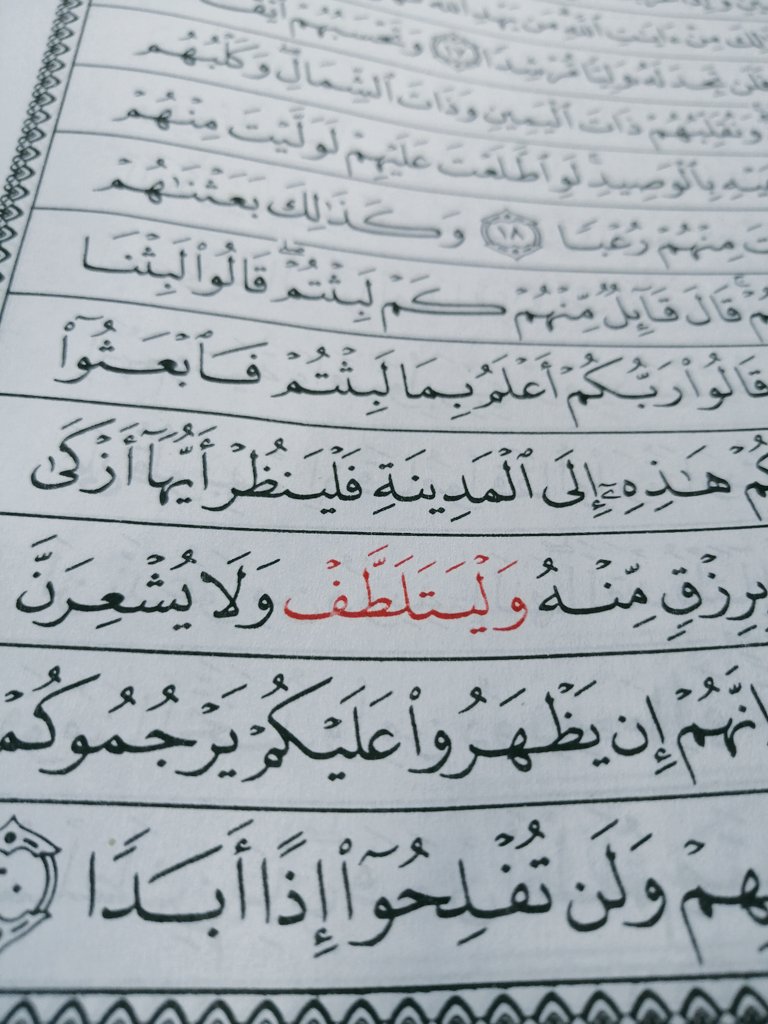 مِنْ ءَايَٰتِ ٱللَّهِ مَن يَهْدِ ٱللَّهُ
تَجِدَ لَهُۥ وَلِيًّا مُّرْشِدًا ١٧ وَتَحْسَبُهُمْ
وَنُقَلِّبُهُمْ ذَاتَ ٱلْيَمِينِ وَذَاتَ ٱلشِّمَالِ ۖ وَكَلْبُهُم
بِٱلْوَصِيدِ ۚ لَوِ ٱطَّلَعْتَ عَلَيْهِمْ لَوَلَّيْتَ مِنْهُمْ
مِنْهُمْ رُعْبًا ١٨ وَكَذَٰلِكَ بَعَثْنَٰهُمْ
قَالَ قَآئِلٌ مِّنْهُمْ كَمْ لَبِثْتُمْ ۖ قَالُوا۟ لَبِثْنَا
قَالُوا۟ رَبُّكُمْ أَعْلَمُ بِمَا لَبِثْتُمْ فَٱبْعَثُوٓا۟
كُم هَٰذِهِۦٓ إِلَى ٱلْمَدِينَةِ فَلْيَنظُرْ أَيُّهَآ أَزْكَىٰ
بِرِزْقٍ مِّنْهُ وَلْيَتَلَطَّفْ وَلَا يُشْعِرَنَّ
إِنَّهُمْ إِن يَظْهَرُوا۟ عَلَيْكُمْ يَرْجُمُوكُمْ
هِمْ وَلَن تُفْلِحُوٓا۟ إِذًا أَبَدًا